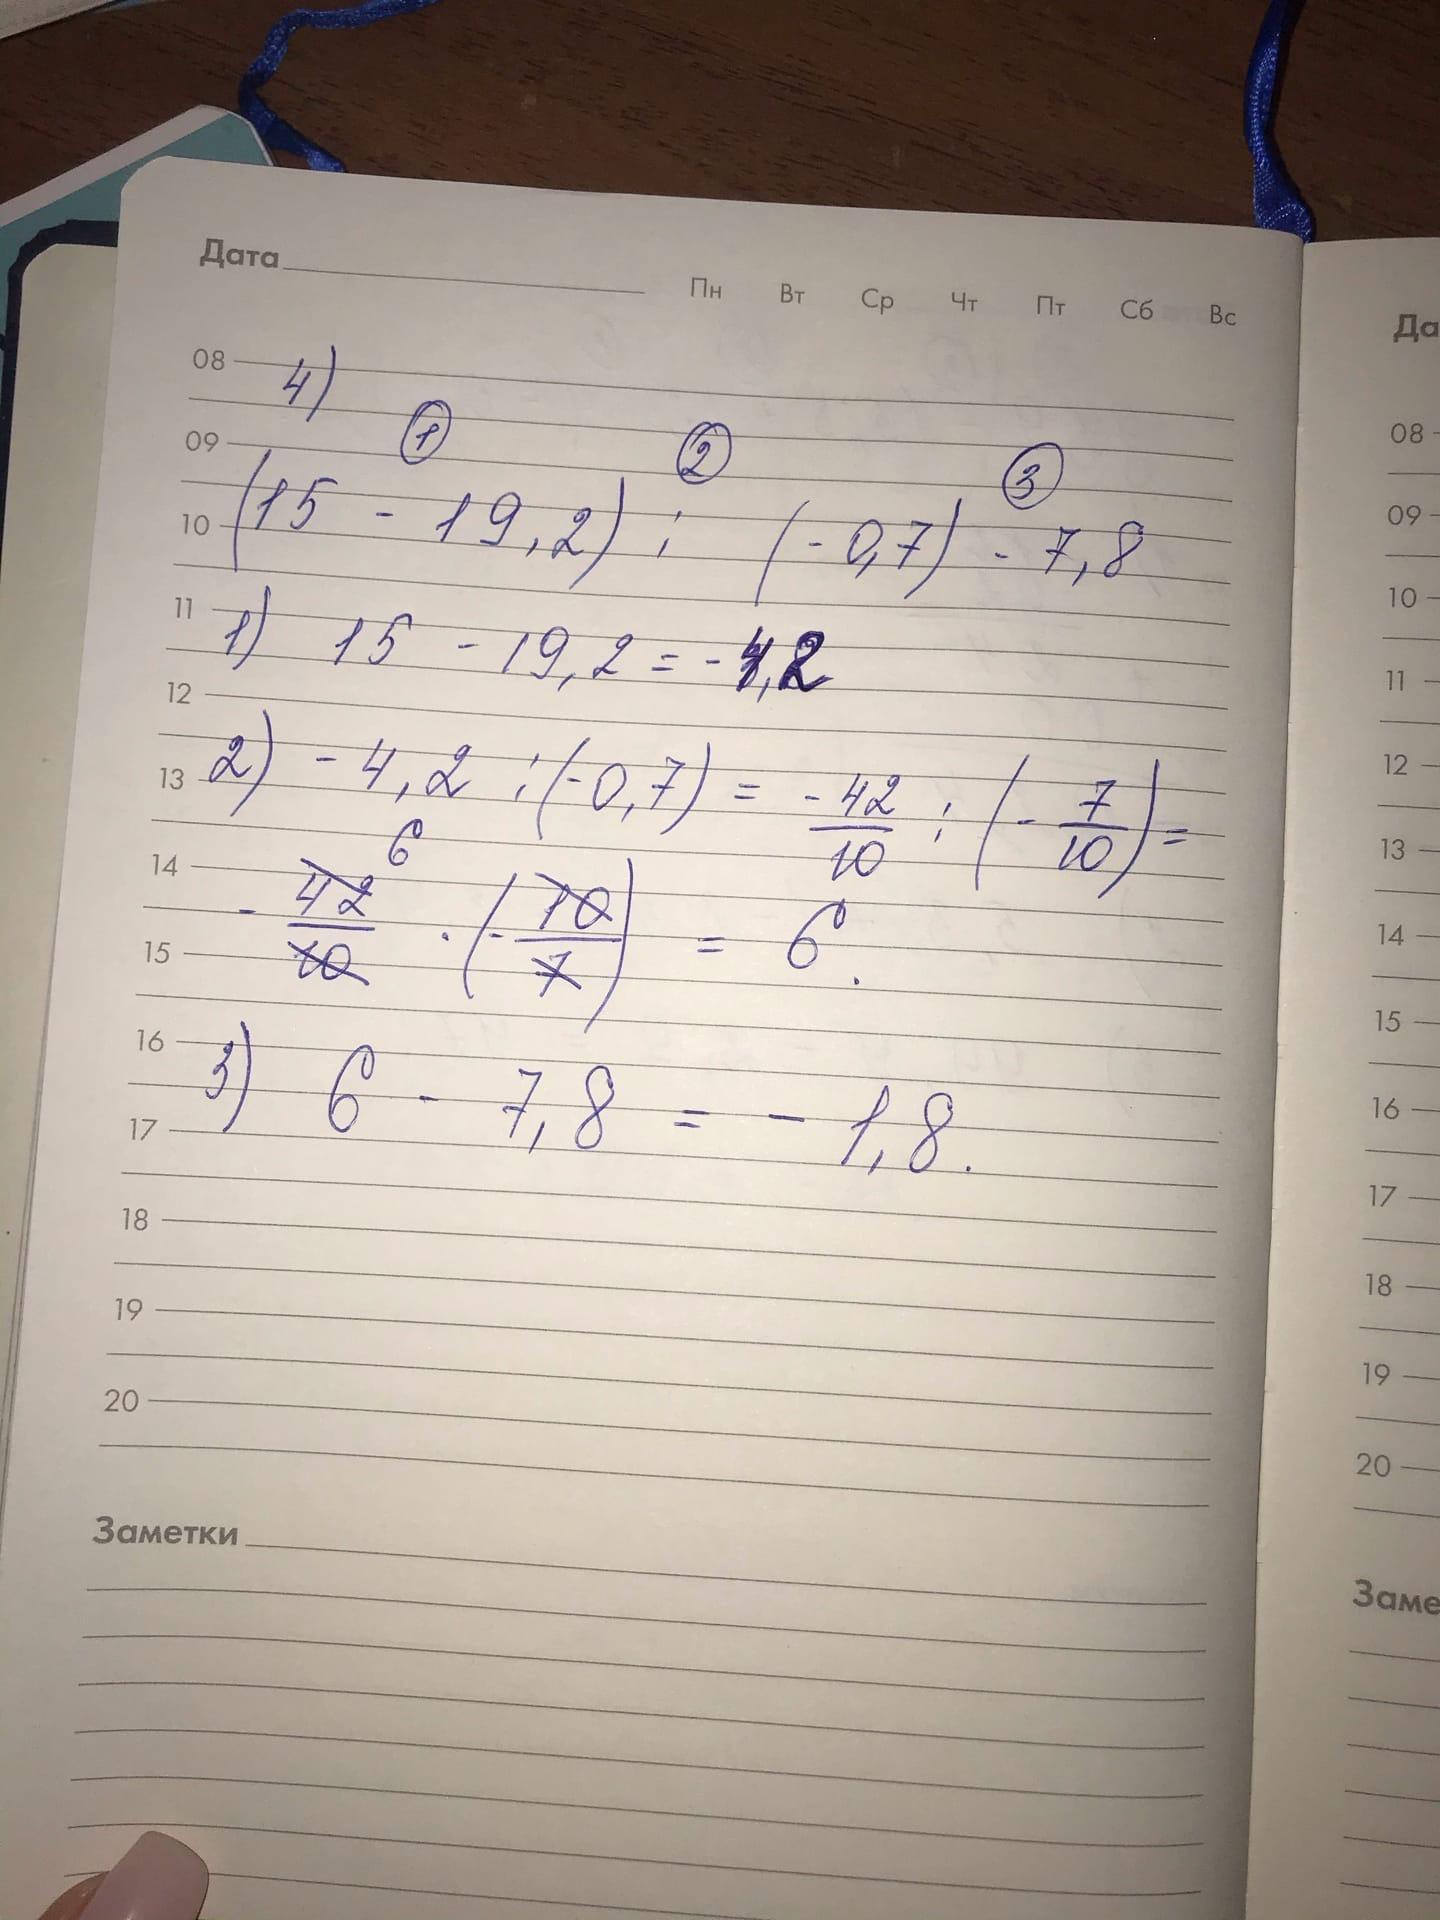 Дата
Пн Вт Ср Чт Пт Сб Вс
08 4)
① ② ③
09
10 (15 - 19,2) : (-0,7) - 7,8
11 1) 15 - 19,2 = -4,2
12
13 2) -4,2 : (-0,7) = -42/10 : (-7/10) =
14 6
15 -42/10 · (-10/7) = 6.
16 3) 6 - 7,8 = -1,8.
17
18
19
20
Заметки
Да
08
09
10
11
12
13
14
15
16
17
18
19
20
Заме